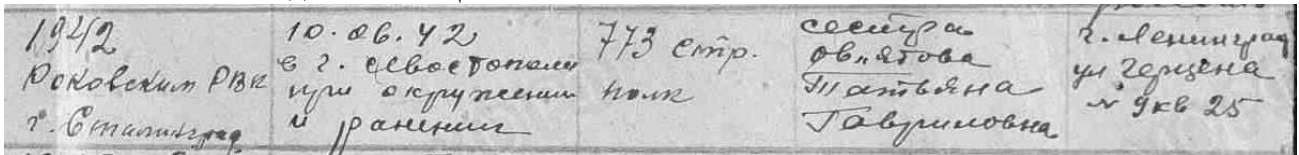 1942
Роковским РВК
г. Сталинград
10.06.42
в г. Севастополи
при окружении
и ранении
773 стр.
полк
сестра
Татьяна
Гавриловна
г. Ленинград
ул Герцена
№ 9 кв 25